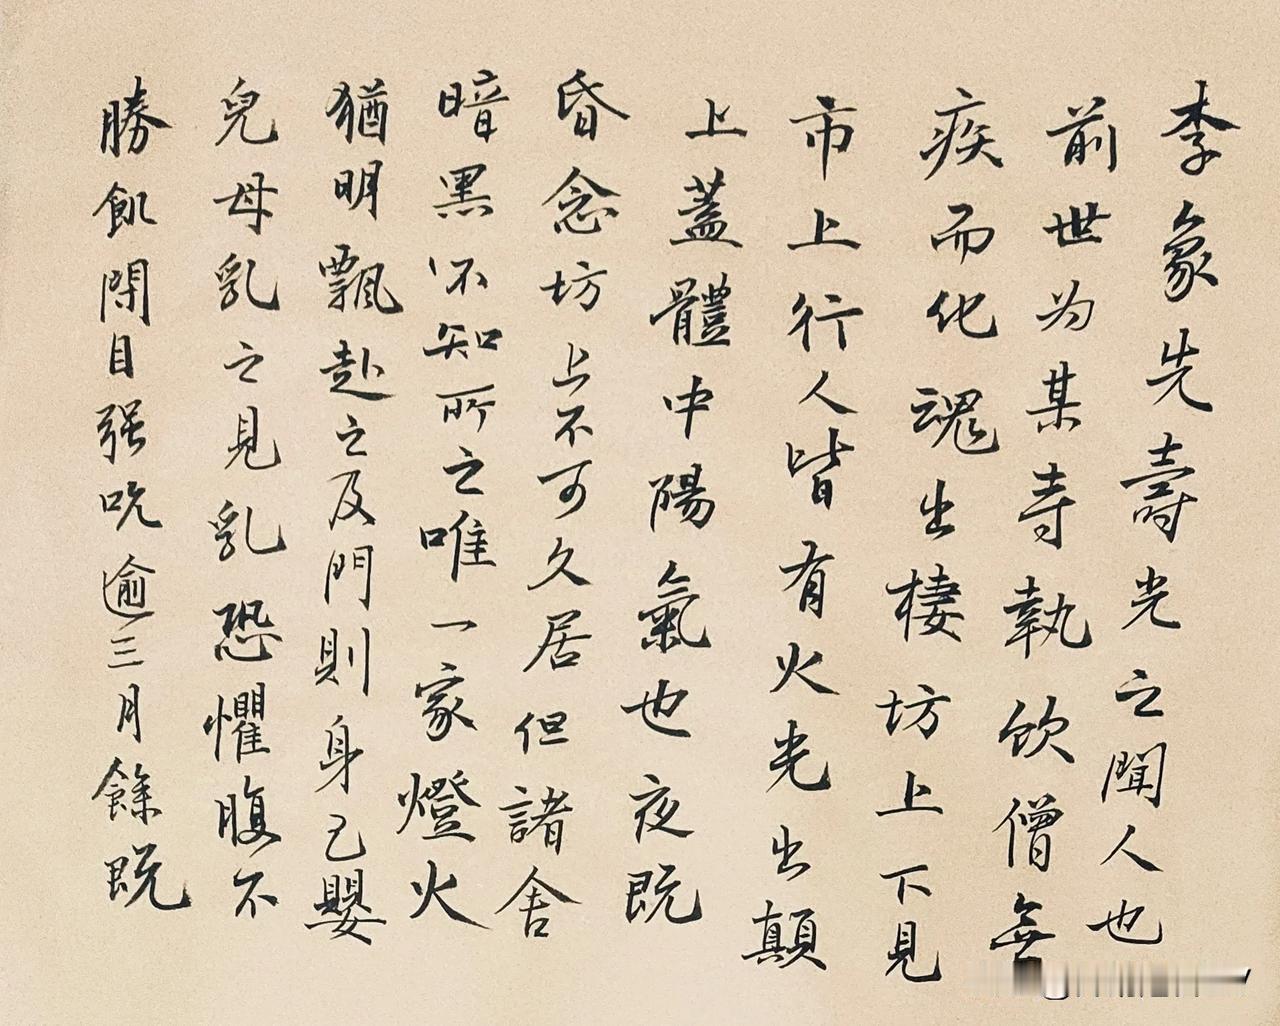 李象先壽光之聞人也
前世为某寺執飲僧無
疾而化魂出棲坊上下見
市上行人皆有火光出顛
上蓋體中陽氣也夜既
昏念坊上不可久居但諸舍
暗黑不知所之唯一家燈火
猶明飄赴之及門則身已嬰
兒母乳之見乳恐懼腹不
勝飢閉目强吮逾三月餘既